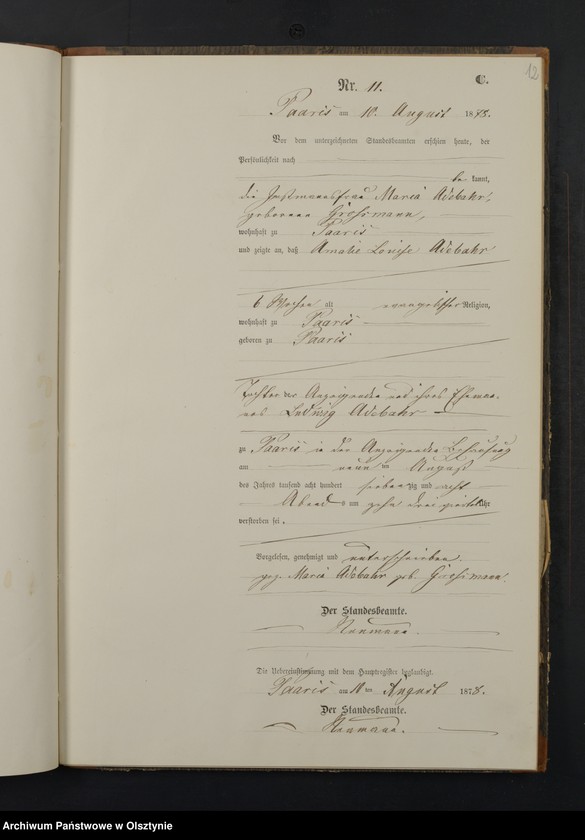 12
C.
Nr. 11.
Paaris am 10. August 1878.
Vor dem unterzeichneten Standesbeamten erschien heute, der
Persönlichkeit nach
be kannt,
die Instmannsfrau Maria Adebahr,
geborene Grossmann,
wohnhaft zu Paaris
und zeigte an, daß Amalie Louise Adebahr
6 Wochen alt evangelischer Religion,
wohnhaft zu Paaris
geboren zu Paaris
Tochter der Anzeigenden und ihres Eheman-
nes Ludwig Adebahr
zu Paaris in der Anzeigenden Behausung
am neun ten August
des Jahres tausend acht hundert sieben zig und acht
Abends um zehn drei viertel Uhr
verstorben sei.
Vorgelesen, genehmigt und unterschrieben
gez. Maria Adebahr geb. Grossmann.
Der Standesbeamte.
Naumann.
Die Uebereinstimmung mit dem Hauptregister beglaubigt.
Paaris am 10 ten August 1878.
Der Standesbeamte.
Naumann.
Archiwum Państwowe w Olsztynie